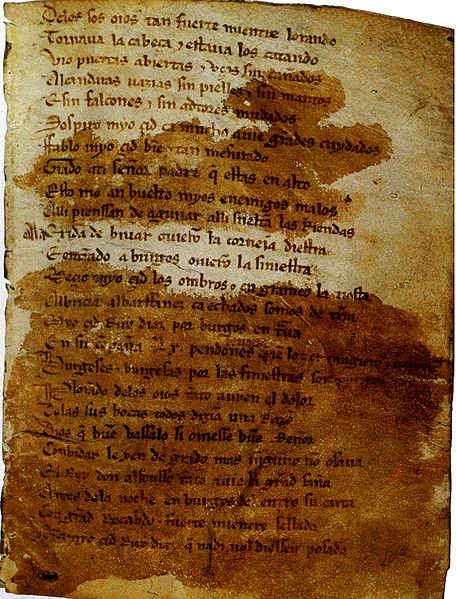 Delos sos oios tan fuerte mientre lorando
Tornaua la cabeça ⁊ estaua los catando
Vio puertas abiertas ⁊ vços sin cañados
Alcandaras uazias sin pielles ⁊ sin mantos
E sin falcones ⁊ sin adtores mudados
Sospiro myo çid ca mucho auie grãdes cuydados
Fablo myo çid bien ⁊ tan mesurado
Grado ati señor padre q̃ estas en alto
Esto me an buelto myos enemigos malos
Alli pienssan de aguiiar alli sueltã las Riendas
Ala exida de biuar ouierõ la corneia diestra
E entrãdo a burgos ouierõ la siniestra
Meçio myo çid los ombros ⁊ en grameo la tiesta
Albriçia albarffanez ca echados somos de tierra
Myo çid Ruy diaz por burgos en traua
En su conpaña .Lx. pendones
Burgeses ⁊ burgesas por las finiestras son
Plorando delos oios tãto auyen el dolor
Delas sus bocas todos dizian una Razõ
Dios q̃ buẽ vassalo si ouiesse buẽ Señor
Conbidar le yen de grado mas ninguno no osaua
El Rey don alfonsso tãto auie la grãd saña
Antes dela noche en burgos del entro su carta
Con grãd Recabdo ⁊ fuerte mientre sellada
Que a myo çid Ruy diaz q̃ nadi nol diessen posada